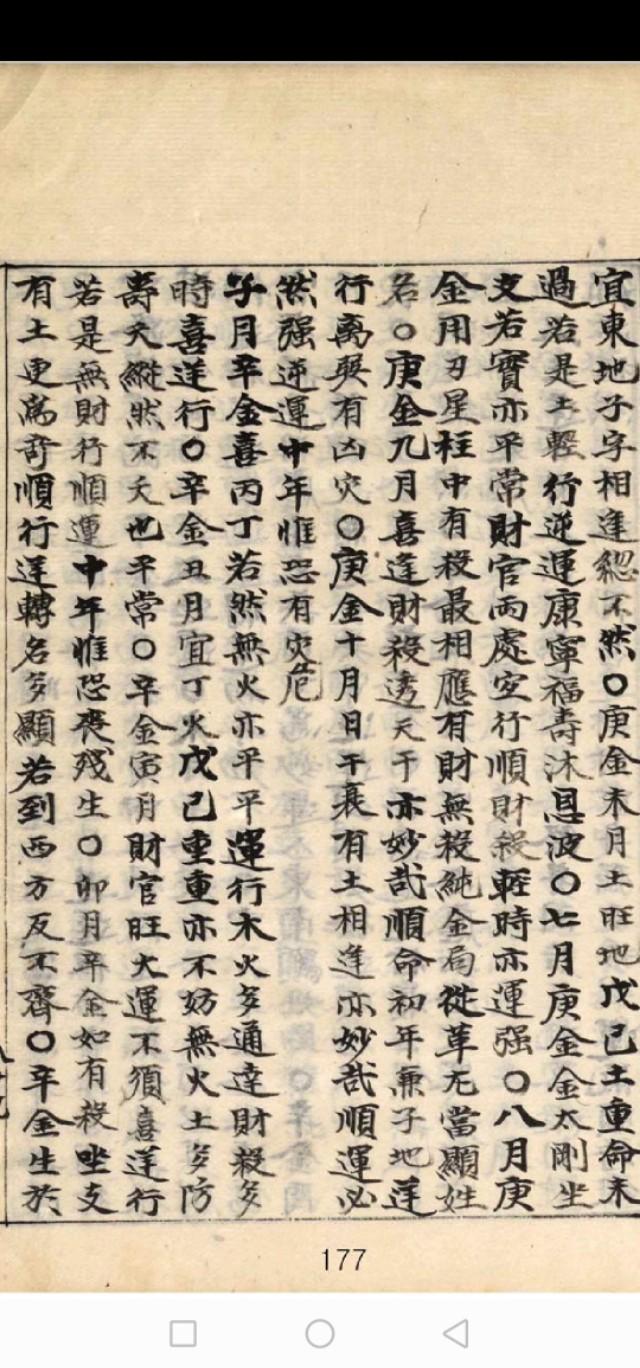 宜東地子字相逢緫不然○庚金未月土旺地戊己土重命未
過若是土輕行逆運康寧福壽沐恩波○七月庚金金太剛坐
支若寅亦平常財官両處空行順財殺輕時亦運强○八月庚
金用刃星柱中有殺最相應有財無殺純金局從革尢當顯姓
名○庚金九月喜逢財殺透天干亦妙哉順命初年兼子地逆
行离巽有凶灾○庚金十月日干衰有土相逢亦妙哉順運必
然强逆運中年惟恐有灾危
子月辛金喜丙丁若然無火亦平平運行木火多通達財殺多
時喜逆行○辛金丑月宜丁火戊己重重亦不妨無火土多防
壽夭縱然不夭也平常○辛金寅月財官旺大運不須喜逆行
若是無財行順運中年惟恐喪残生○卯月辛金如有殺坐支
有土更爲奇順行逆轉名多顯若到西方反不齊○辛金生於
177